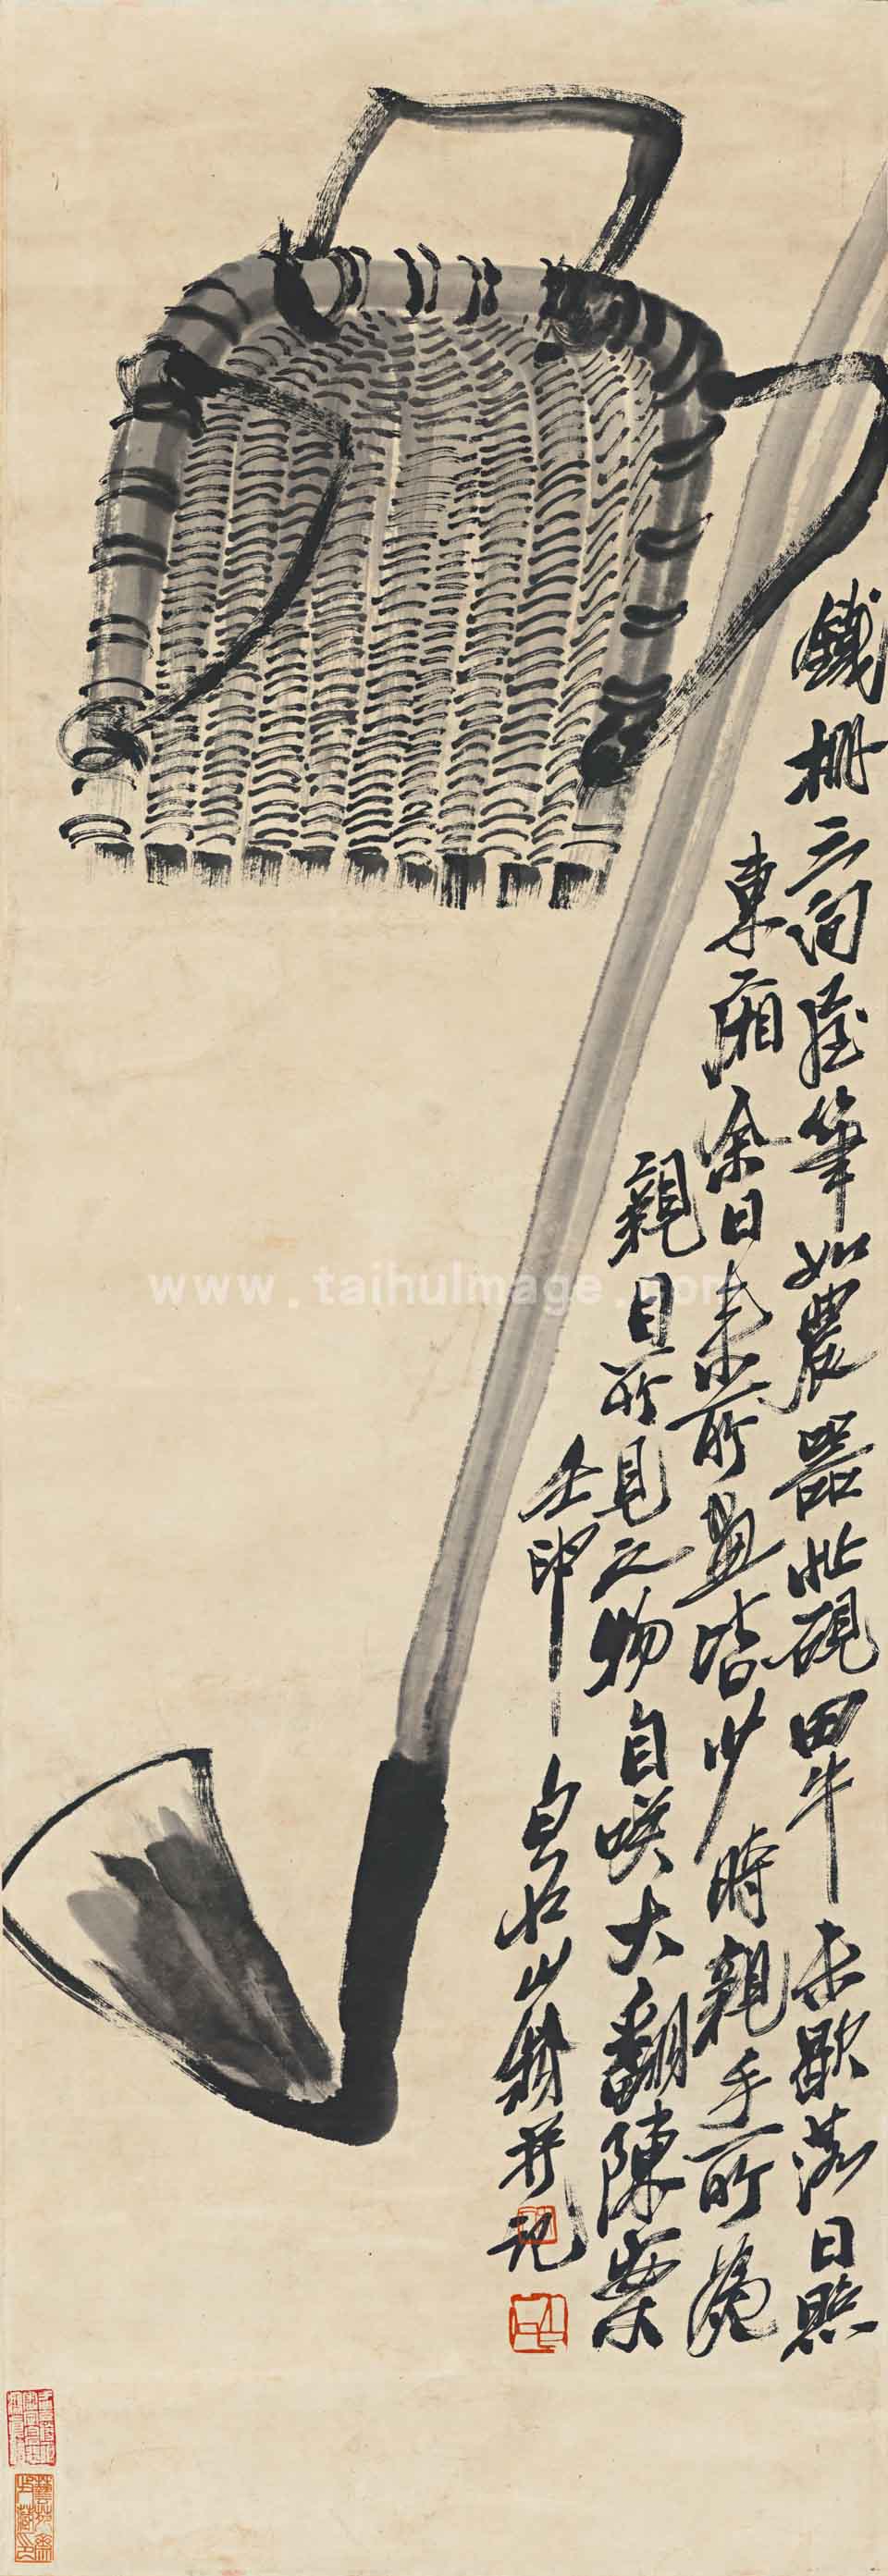 鐵柵三間屋筆如農器忙硯田牛未歇落日照
東廂余日來所畫皆少時親手所為
親目所見之物自咲大翻陳案
壬申白石山翁并記
www.taihuImage.com